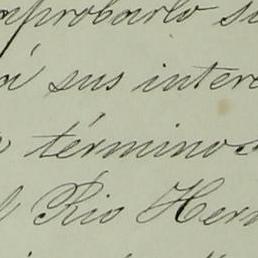 aprobarlo su
á sus intere
término
Rio Hern